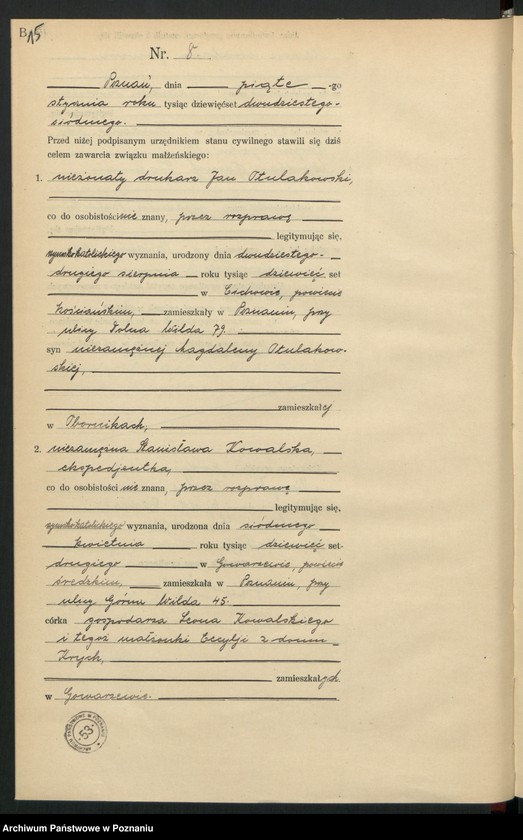 B 15
Nr. 8.
Poznań, dnia piąte -go
stycznia roku tysiąc dziewięćset dwudziestego-
siódmego.
Przed niżej podpisanym urzędnikiem stanu cywilnego stawili się dziś
celem zawarcia związku małżeńskiego:
1. nieżonaty drukarz Jan Otulakowski,
co do osobistości nie znany, przez rozprawę
legitymując się,
rzymskokatolickiego wyznania, urodzony dnia dwudziestego-
drugiego sierpnia roku tysiąc dziewięć set
w Cichowie, powiecie
kościańskim, zamieszkały w Poznaniu, przy
ulicy Dolna Wilda 79.
syn niezamężnej Magdaleny Otulakow-
skiej,
zamieszkałej
w Obornikach,
2. niezamężna Stanisława Kowalska,
ekspedjentka,
co do osobistości nie znana, przez rozprawę
legitymując się,
rzymskokatolickiego wyznania, urodzona dnia siódmego
kwietnia roku tysiąc dziewięć set-
drugiego w Gowarzewie, powiecie
średzkim, zamieszkała w Poznaniu, przy
ulicy Górna Wilda 45.
córka gospodarza Leona Kowalskiego
i tegoż małżonki Cecylji z domu
zamieszkałych
w Gowarzewie.
53
Archiwum Państwowe w Poznaniu